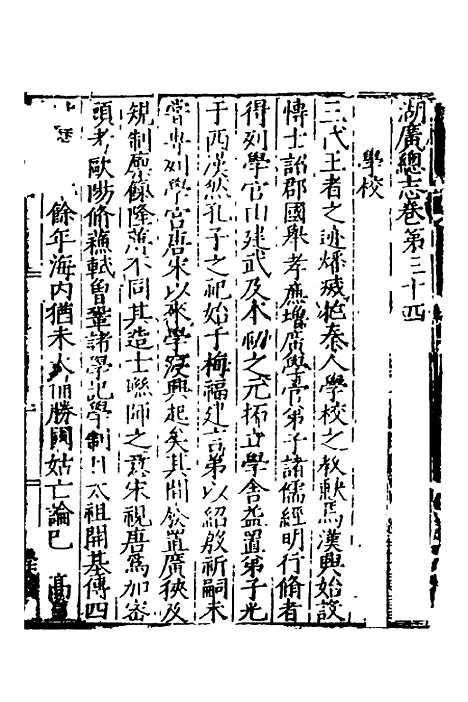 湖廣總志卷第三十四
學校
三代王者之迹熄滅於秦人學校之教缺焉漢興始設
博士詔郡國舉孝廉增廣學官弟子諸儒經明行脩者
得列學官由建武及本初之元拓立學舍益置弟子光
于西漢然孔子之祀始于梅福建言第以紹殷祈嗣未
嘗專列學宮唐宋以來學校興起矣其間發置廣狹及
規制廩餼隆薄不同其造士聯師之意宋視唐為加密
頭考歐陽脩蘇軾曾鞏諸學記學制 太祖開基傳四
餘年海內猶未 備勝國姑亡論已 高